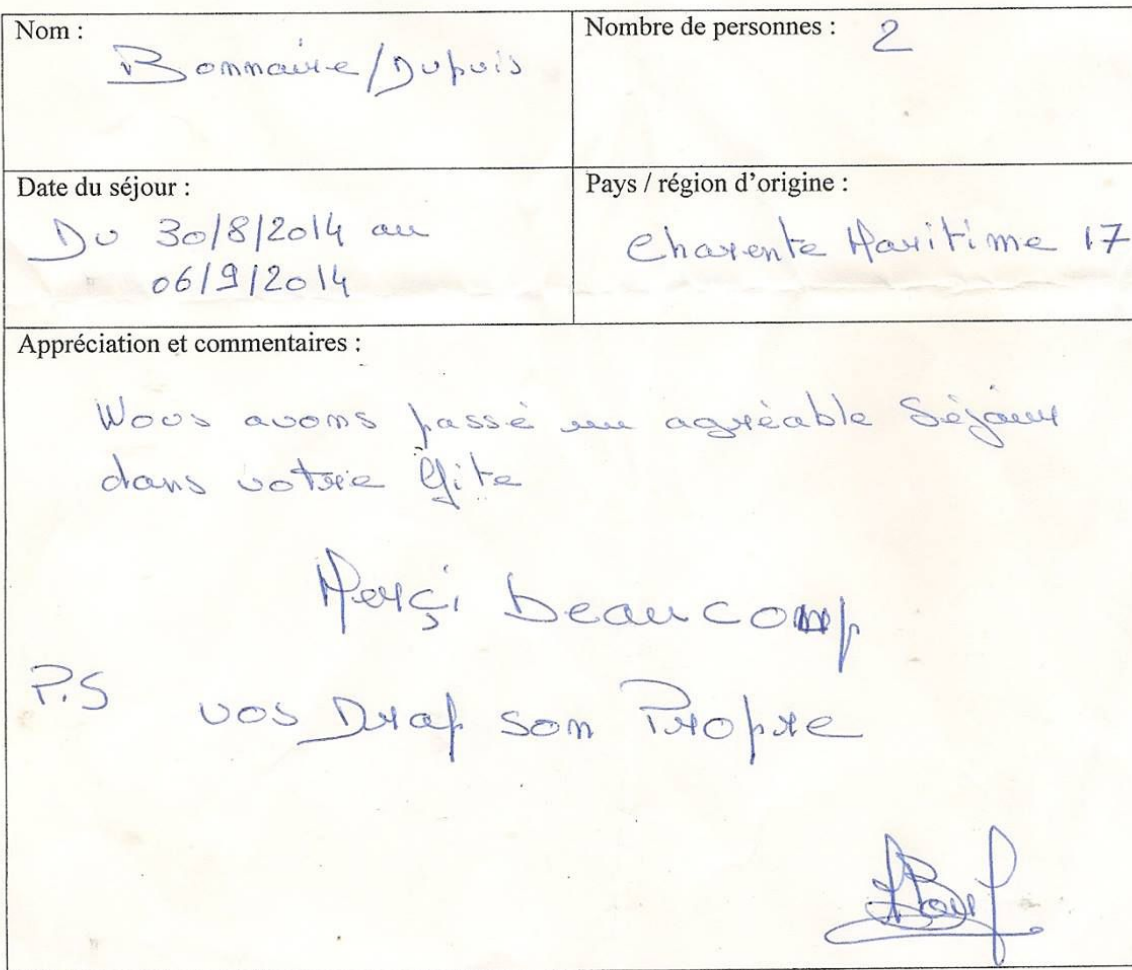 Nom :
Bonnaire/Dupuis
Nombre de personnes : 2
Date du séjour :
Du 30/8/2014 au
06/9/2014
Pays / région d'origine :
Charente Maritime 17
Appréciation et commentaires :
Nous avons passé un agréable Séjour
dans votre Gite
Merçi beaucoup
P.S vos Drap son Propre